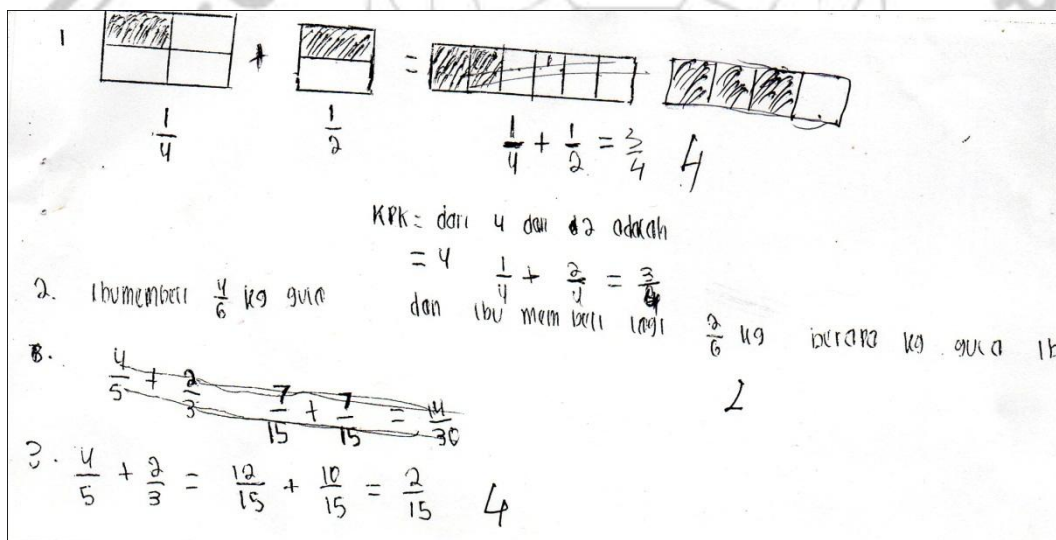 1
1/4 + 1/2 =
1/4 + 1/2 = 3/4 4
KPK = dari 4 dan 2 adalah
= 4 1/4 + 2/4 = 3/4
2. Ibu membeli 4/6 kg gula dan ibu membeli lagi 2/6 kg berapa kg gula Ib
2
4/5 + 2/3 7/15 + 7/15 = 14/30
3. 4/5 + 2/3 = 12/15 + 10/15 = 2/15 4